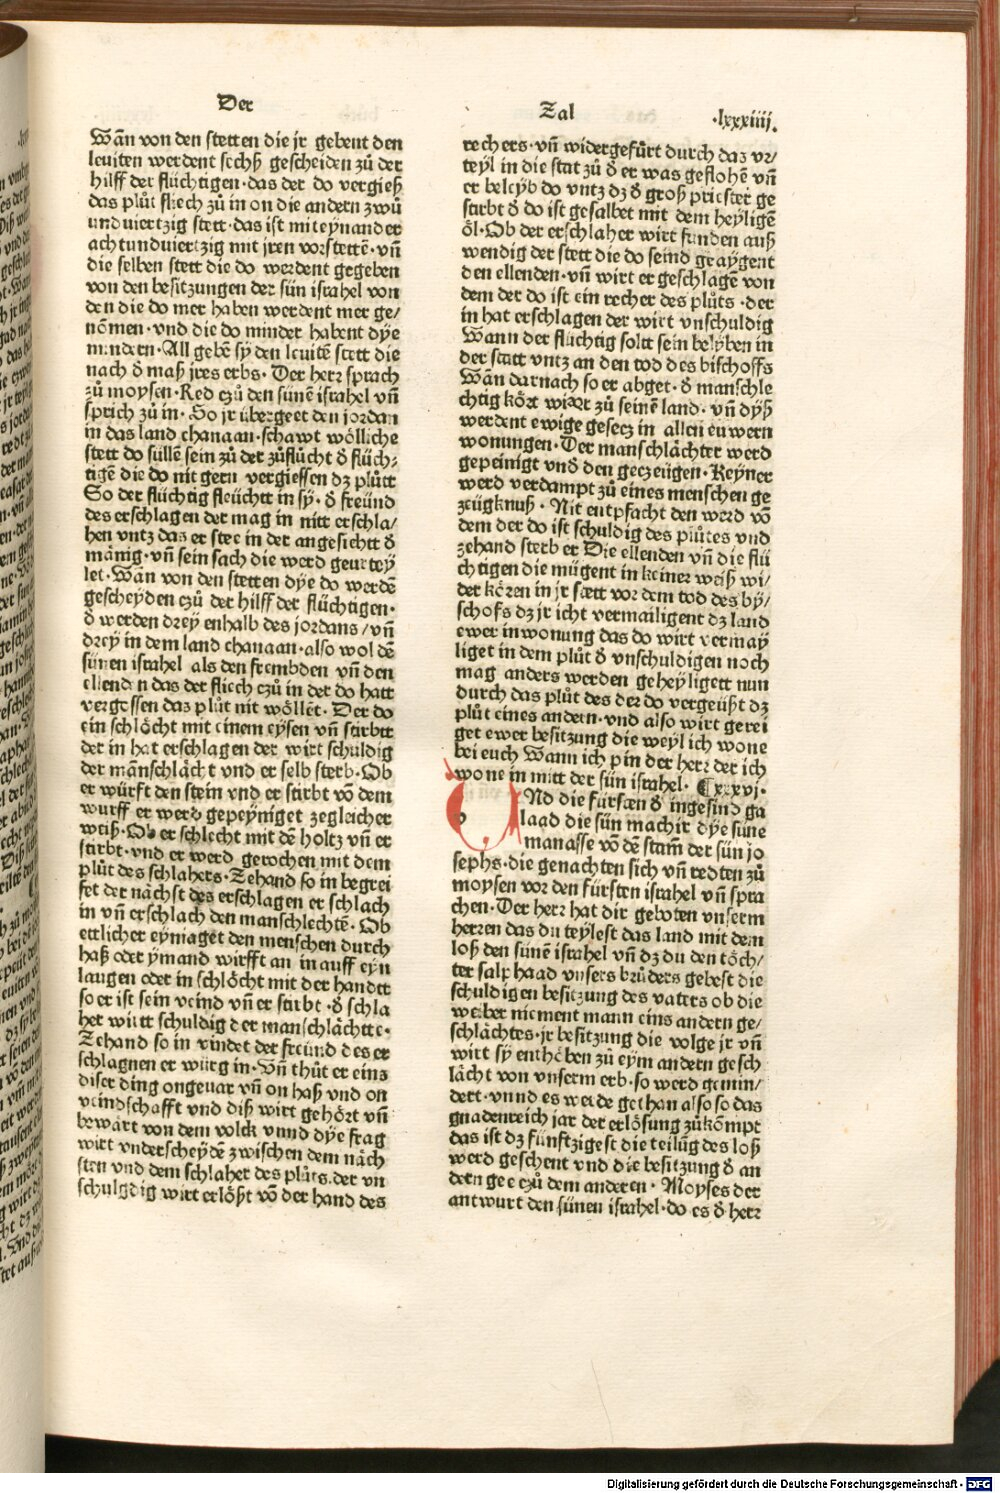 Der
Zal
·lxxxiiij.
Wañ von den stetten die jr gebent den
leuiten werdent sechß gescheiden zů der
hilff der flüchtigen·das der do vergieß
das plůt fliech zů in on die andern zwů
und viertzig stett·das ist miteynander
achtundviertzig mit jren vorstettē·vñ
die selben stett die do werdent gegeben
von den besitzungen der sün israhel von
den die do mer haben werdent mer ge/
nōmen·vnd die do minder habent dÿe
mindern·All gebē sÿ den leuitē stett die
nach ð maß jres erbs·Der herr sprach
zů moysen·Red czů den sünē israhel vñ
sprich zů in·So jr übergeet den jordan
in das land chanaan·schawt wölliche
stett do süllē sein zů der zůflücht ð flüch/
tigē die do nit gern vergiessen dz plůt
So der flüchtig fleücht in sÿ·ð freünd
des erschlagen der mag in nitt erschla/
hen vntz das er stee in der angesicht ð
mānig·vñ sein sach die werd geurtey
let·Wān von den stetten dÿe do werdē
gescheyden czů der hilff der flüchtigen·
ð werden drey enhalb des jordans/vñ
drey in dem land chanaan·also wol dē
sünen israhel als den frembden vñ den
ellenden das der fliech czů in der do hatt
vergossen daz plůt nit wöllēt·Der do
ein schlöcht mit einem eysen vñ stirbtt
der in hat erschlagen der wirt schuldig
der mānschlācht vnd er selb sterb·Ob
er würft den stein vnd er stirbt vō dem
wurff er werd gepeyniget zegleicher
weiß·Ob er schlecht mit dē holtz vñ er
stirbt·vnd er werd gerochen mit dem
plůt des schlahers·Zehand so in begrei
fet der nächst des erschlagen er schlach
in vñ erschlach den manschlechtē·Ob
ettlicher eyniaget den menschen durch
haß oder ymand wirfft an in auff eyn
laugen oder in schlöcht mit der handtt
so er ist sein veind vñ er stirbt·ð schla
her wirtt schuldig der manschlächtte·
Zehand so in vindet der freünd des er
schlagnen er würg in·Vñ thůt er eins
diser ding ongeuar vñ on haß vnd on
veindschafft vnd diß wirt gehört vñ
bewärt von dem volck vnnd dÿe frag
wirt vnderscheydē zwischen dem näch
sten vnd dem schlaher des plůts·der vn
schulgdig wirt erlößt vō der hand des
rechers·vñ widergefůrt durch daz vr/
teyl in die stat zů ð er was geflohē vñ
er beleyb do vntz dz ð groß priester ge
stirbt ð do ist gesalbet mit dem heyligē
öl·Ob der erschlaher wirt funden auß
wendig der stett die do seind geaygent
den ellenden·vñ wirt er geschlagē von
dem der do ist ein recher des plůts·der
in hat erschlagen der wirt vnschuldig
Wann der flüchtig solt sein belyben in
der statt vntz an den tod des bischoffs
Wān darnach so er abget·ð manschle
chtig kört wider zů seinē land·vñ dÿß
werdent ewige gesecz in allen euwern
wonungen·Der manschlächter werd
gepeinigt vnð den geczeügen·Reyner
werd verdampt zů eines menschen ge
zeügknuß·Nit entpfacht den werd vō
dem der do ist schuldig des plůtes vnd
zehand sterb er Die ellenden vñ die flü
chtigen die mügent in keiner weiß wi/
der kören in jr stett vor dem tod des by/
schofs dz jr icht vermailigent dz land
ewer inwonung das do wirt vermay
liget in dem plůt ð vnschuldigen noch
mag anders werden geheyligett nun
durch das plůt des der do vergeüßt dz
plůt eines andern·vnd also wirt gerei
get ewer besitzung die weyl ich wone
bei euch Wann ich pin der herr der ich
wone in mitt der sün israhel· ¶xxxvj·
Nd die fürsten ð ingesind ga
laad die sün machir dÿe süne
manasse vō dē stam̄ der sün jo
sephs·die genachten sich vñ redten zů
moysen vor den fürsten israhel vñ spra
chen·Der herr hat dir geboten vnserm
herren das du teylest das land mit dem
loß den sünē israhel vñ dz du den töch/
ter salphaad vnsers brůders gebest die
schuldigen besitzung des vaters ob die
weiber niement mann eins andern ge/
schlächtes·jr besitzung die volge jr vñ
wirt sÿ enthöben zů eym andern gesch
lächt von vnserm erb·so werd gemin/
dert·vnnd es werde gethan also so das
gnadenreich jar der erlösung zůkōmpt
das ist dz fünftzigest die teilūg des loß
werd geschent vnd die besitzung ð an
dern gee czů dem anderen·Moyses der
antwurt den sünen israhel·do es ð herr
Digitalisierung gefördert durch die Deutsche Forschungsgemeinschaft - DFG